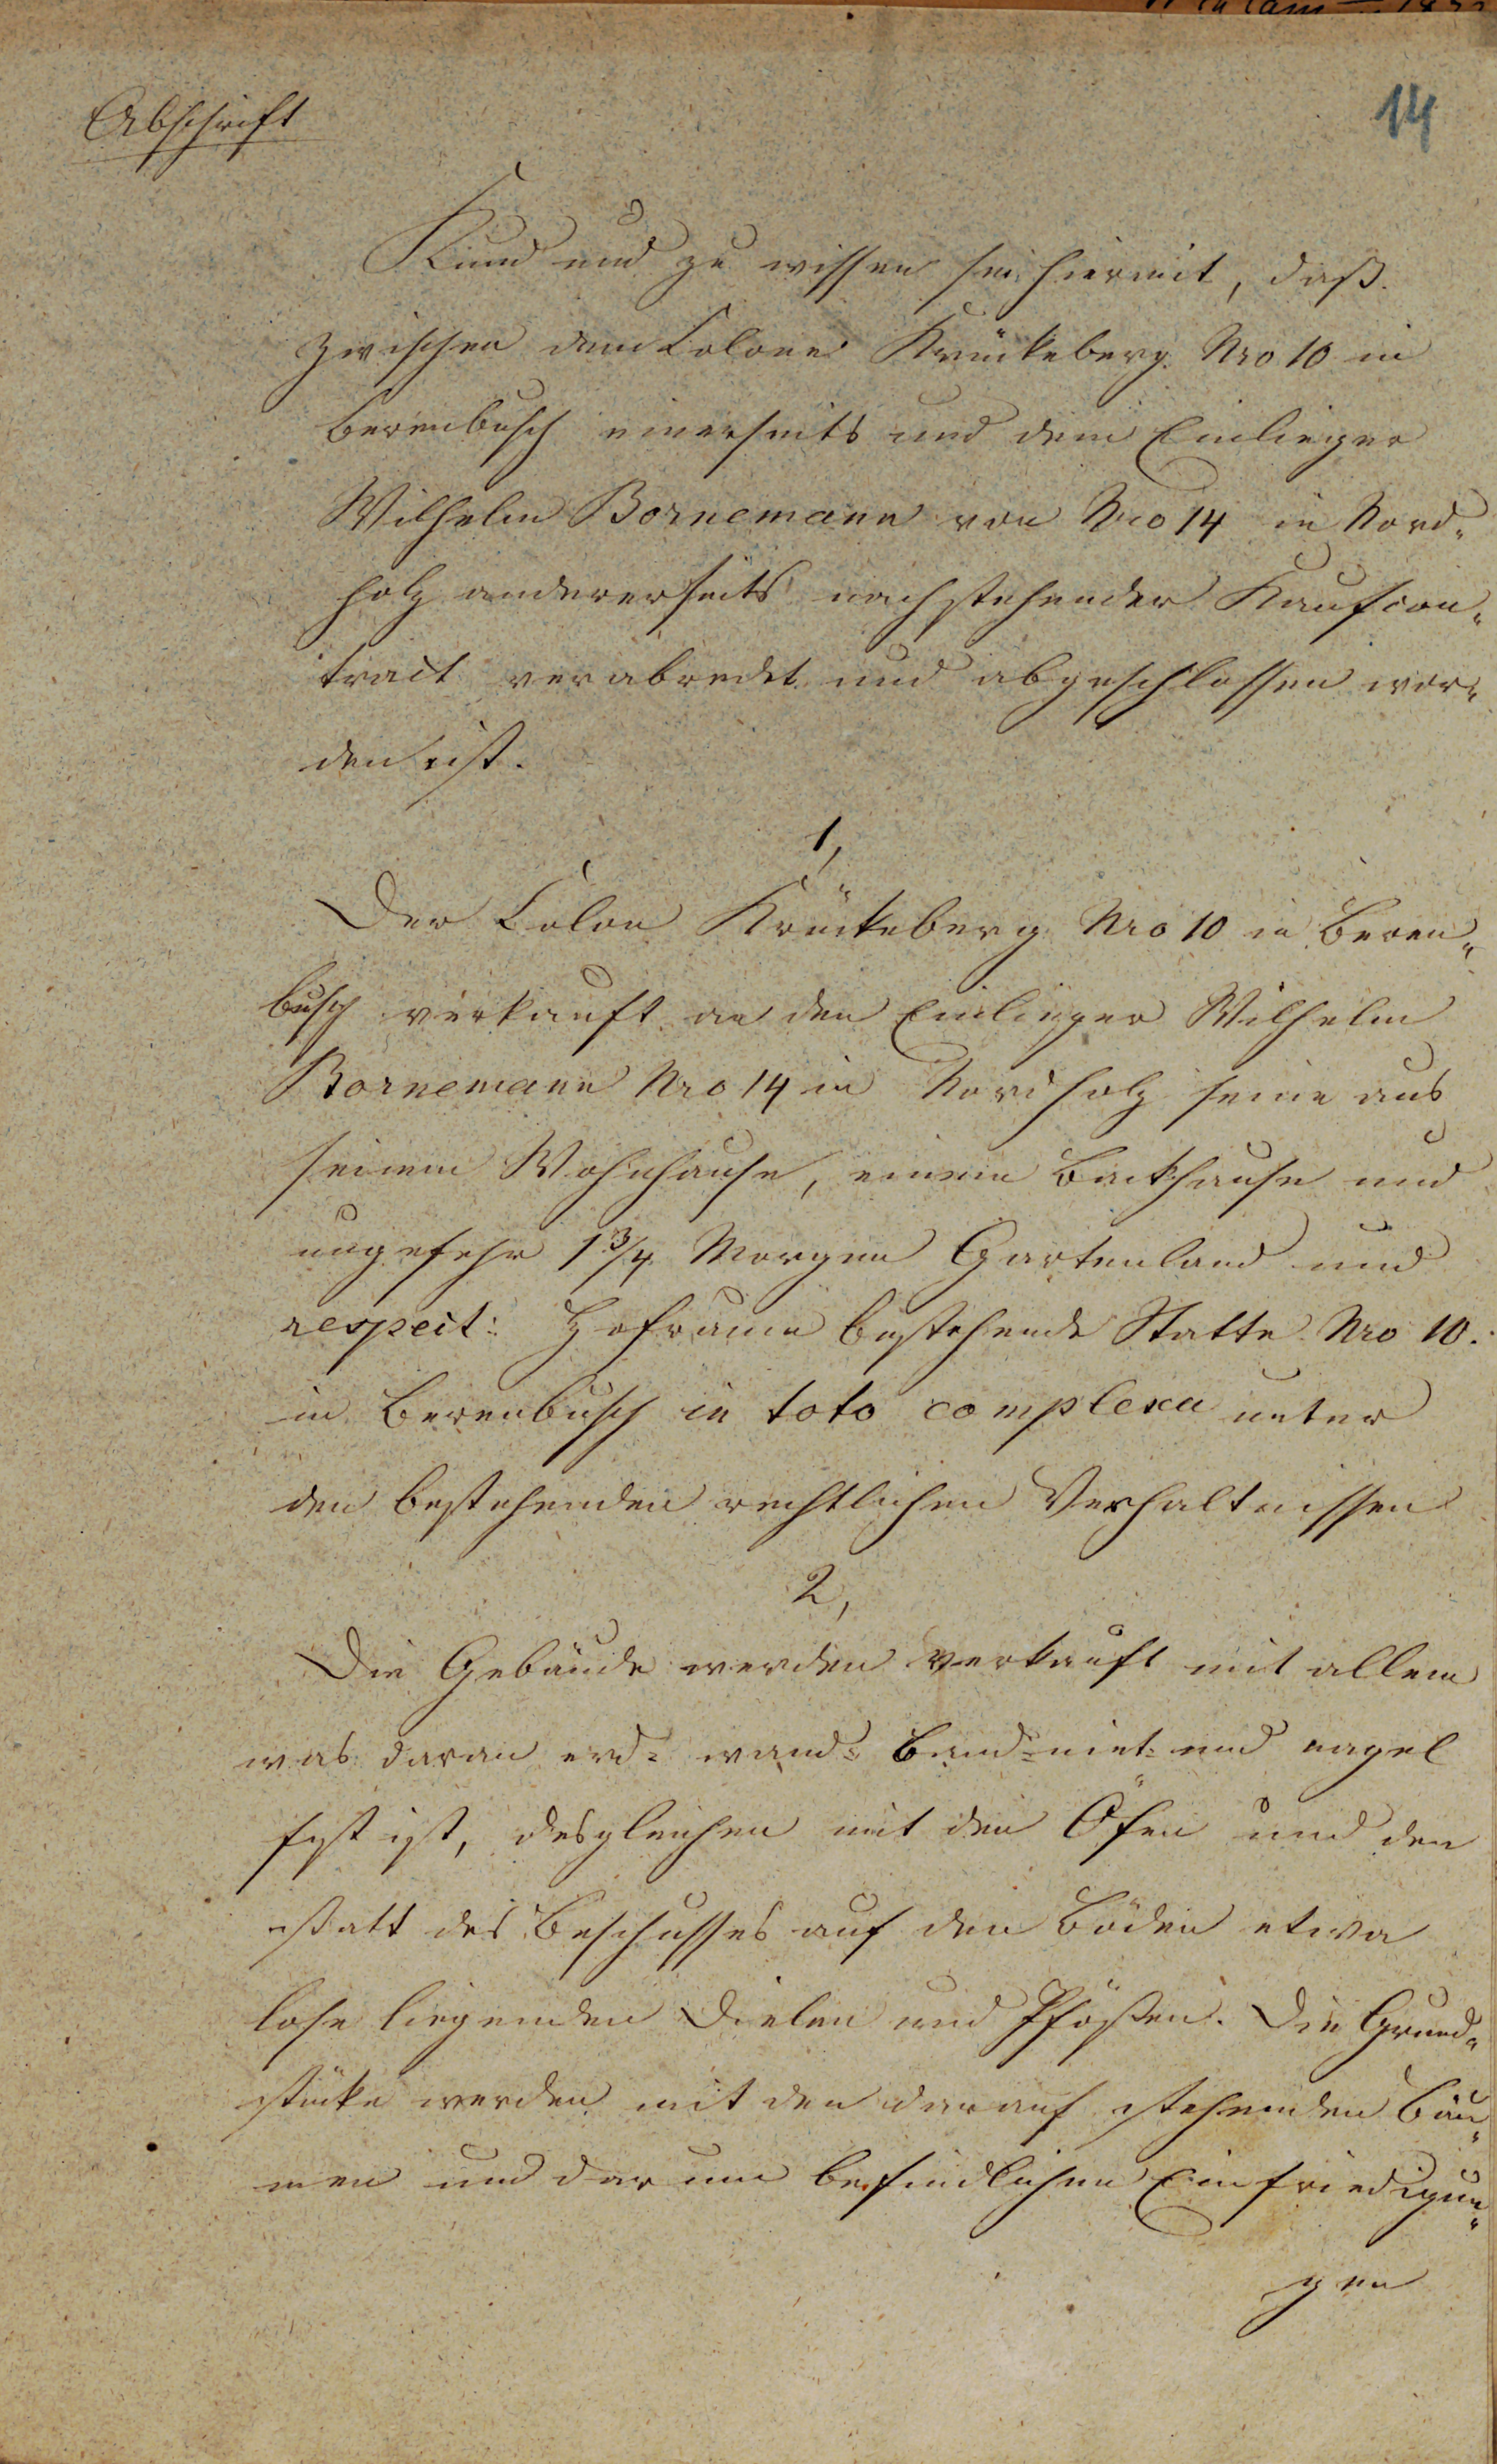 Abschrift
14
Kund und zu wissen sei hiermit, daß
zwischen dem Colone Krückeberg Nro 10 in
Berenbusch einerseits und dem Einlieger
Wilhelm Bornemann von Nro 14 in Nord-
holz andererseits nachstehender Kaufcon-
tract verabredet und abgeschlossen wor-
den ist.
1,
Der Colon Krückeberg Nro 10 in Beren-
busch verkauft an den Einlieger Wilhelm
Bornemann Nro 14 in Nordholz seine aus
seinem Wohnhause, einem Backhause und
ungefehr 1 3/4 Morgen Gartenland und
respect: Hofraum bestehende Statte Nro 10.
in Berenbusch in toto complexu unter
den bestehenden rechtlichen Verhaltnissen
2,
Die Gebäude werden verkauft mit allem
was daran erd- wand- band- niet- und nagel
fest ist, desgleichen mit den Öfen und den
statt des Beschusses auf den Böden etwa
lose liegenden Dielen und Pfosten. Die Grund-
stücke werden mit den darauf stehenden Bäu-
men und darum befindlichen Einfriedigun-
gen